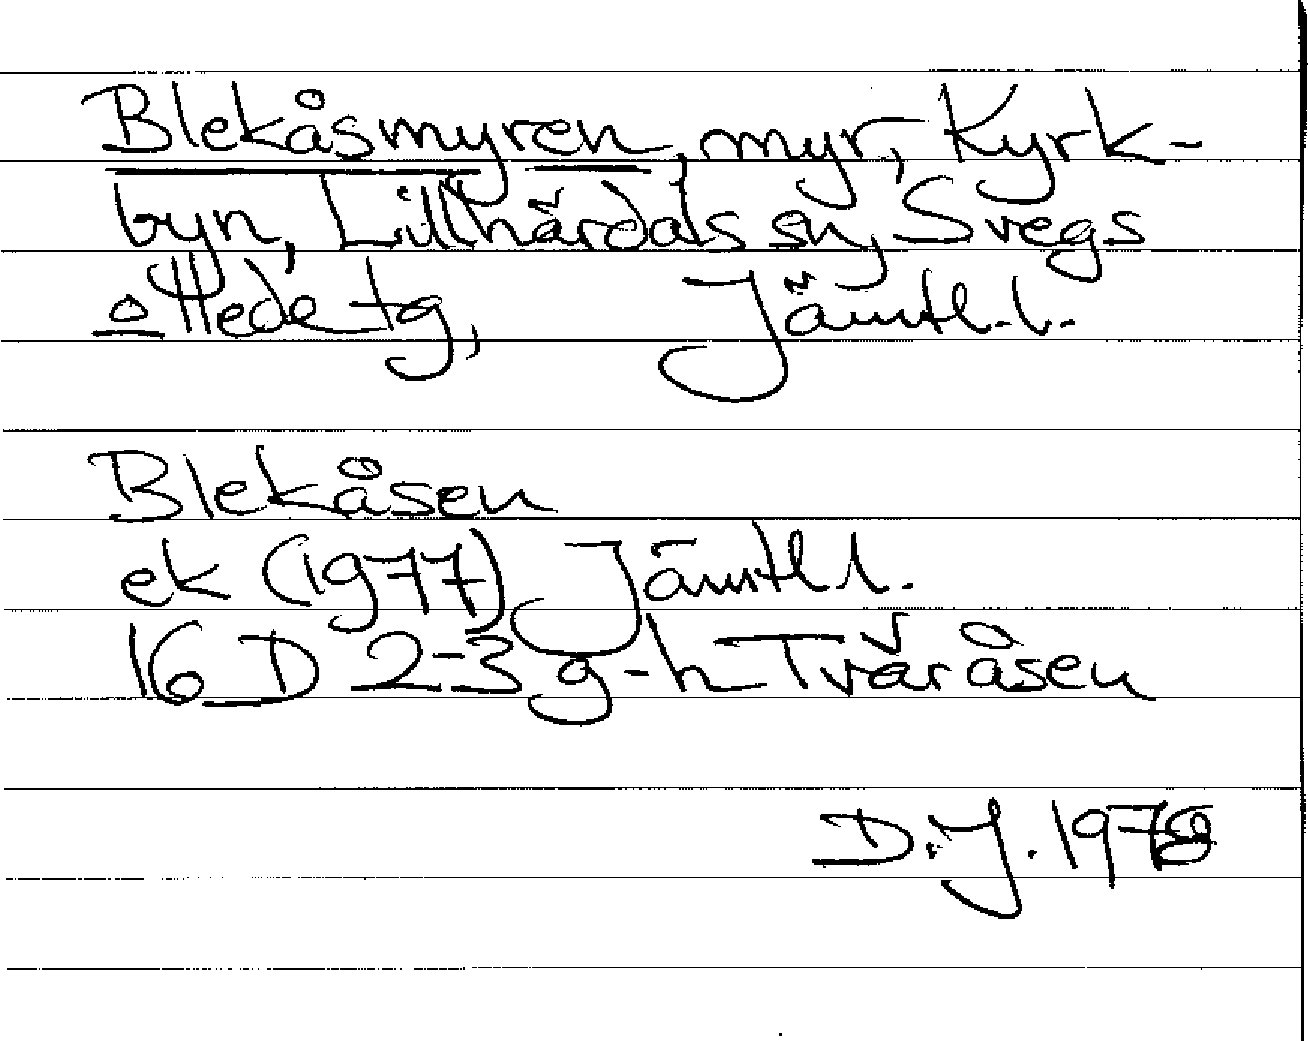 Blekåsmyren, myr, Kyrk-
byn, Lillhärdals sn, Svegs
o Hede tg, Jämtl. l.
Blekåsen
ek (1977) Jämtl l.
16 D 2-3 g-h Tväråsen
D. J. 1978